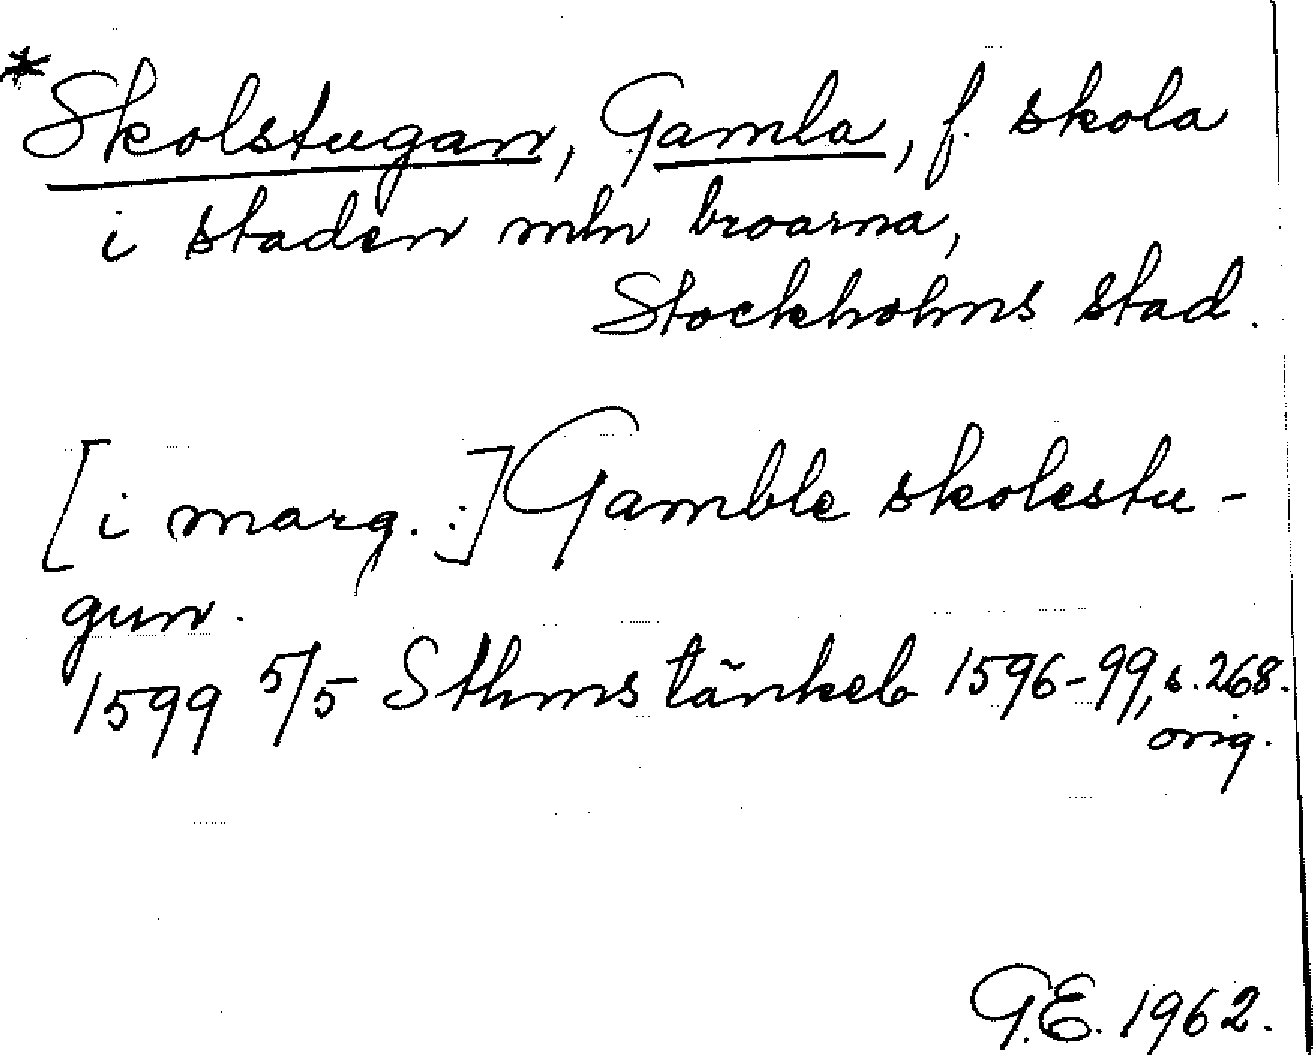 *Skolstugan, Gamla, f. skola
i staden mln broarna,
Stockholms stad.
[i marg.:] Gamble skolestu-
gun.
1599 5/5 Sthms tänkeb 1596-99, s. 268.
orig.
G.E. 1962.